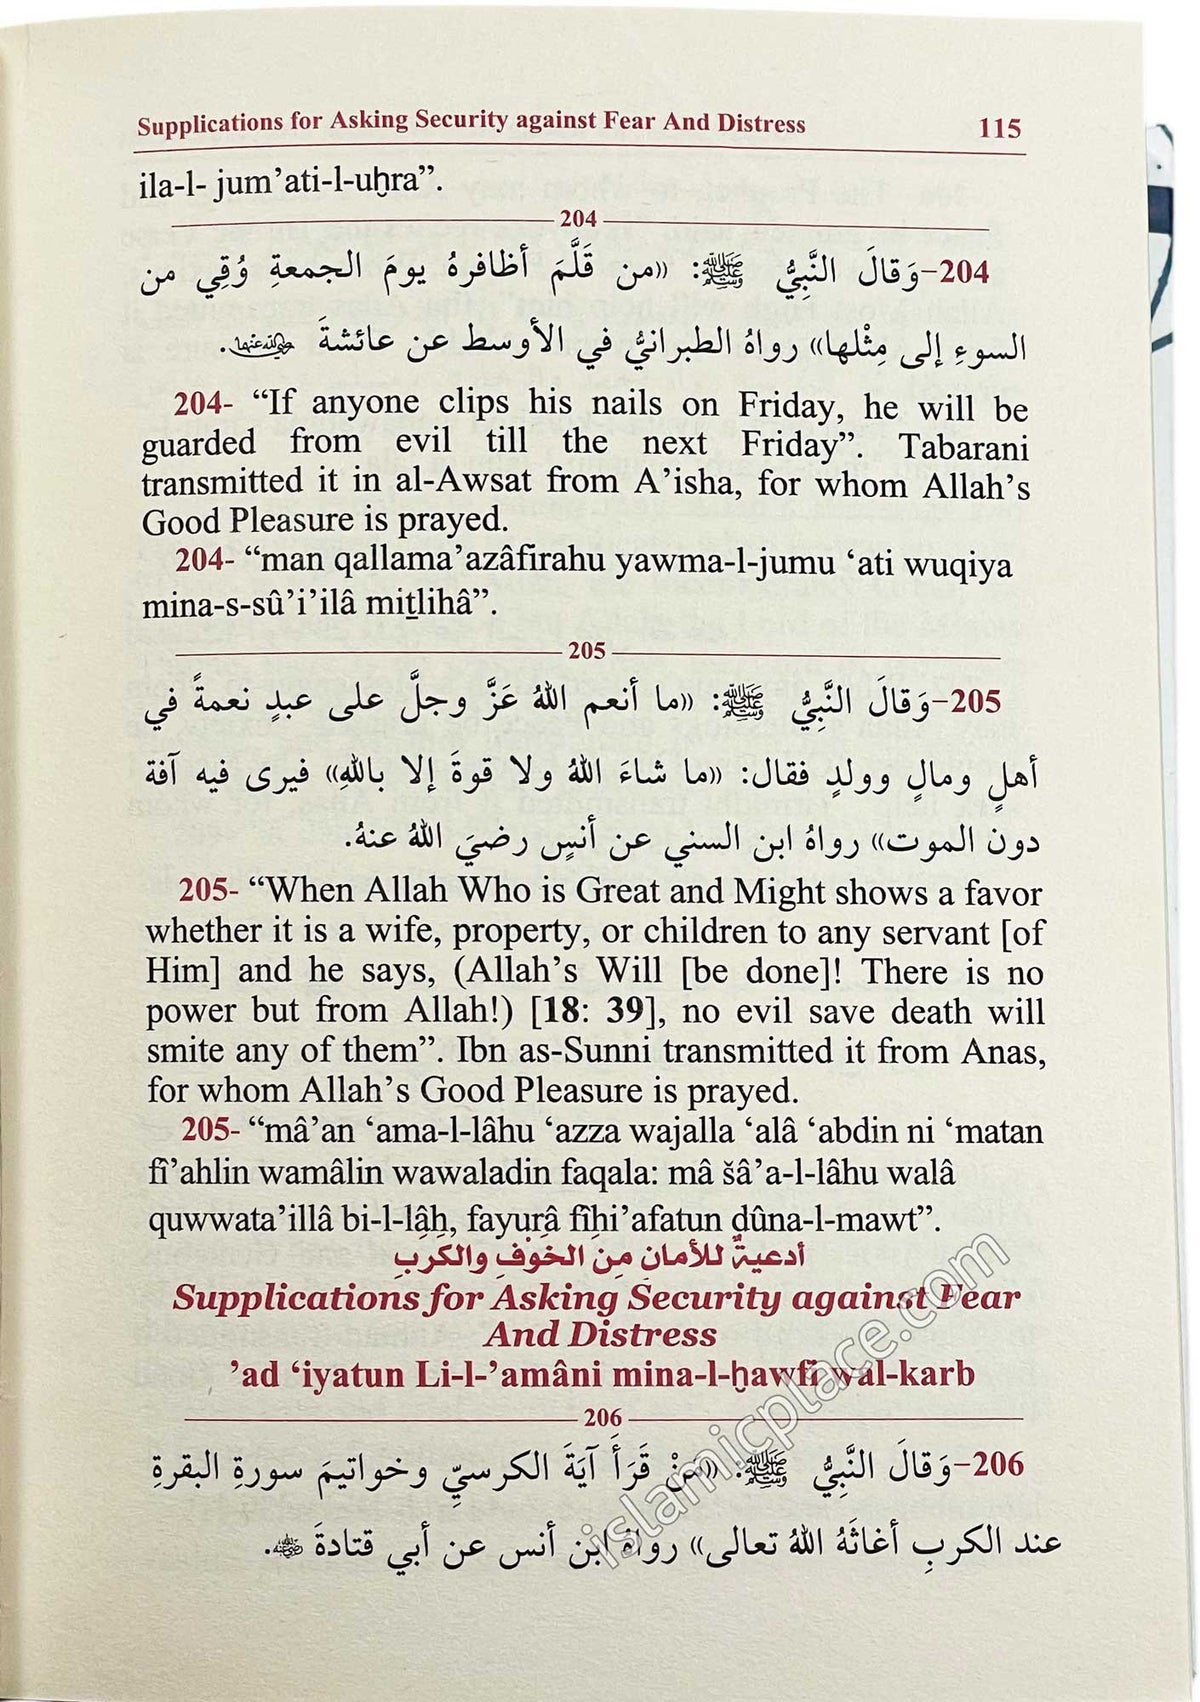 Supplications for Asking Security against Fear And Distress 115
ila-l- jum’ati-l-uẖra”.
204
204-وَقالَ النَّبِيُّ ﷺ: «من قَلَّمَ أظافرهُ يومَ الجمعةِ وُقِي من
السوءِ إلى مِثْلها» رواهُ الطبرانيُّ في الأوسط عن عائشةَ رضي الله عنها.
204- “If anyone clips his nails on Friday, he will be
guarded from evil till the next Friday”. Tabarani
transmitted it in al-Awsat from A’isha, for whom Allah’s
Good Pleasure is prayed.
204- “man qallama’azâfirahu yawma-l-jumu ‘ati wuqiya
mina-s-sû’i’ilâ miṯlihâ”.
205
205-وَقالَ النَّبِيُّ ﷺ: «ما أنعم اللهُ عَزَّ وجلَّ على عبدٍ نعمةً في
أهلٍ ومالٍ وولدٍ فقال: «ما شاءَ اللهُ ولا قوةَ إلا باللهِ» فيرى فيه آفة
دون الموت» رواهُ ابن السني عن أنسٍ رضيَ اللهُ عنهُ.
205- “When Allah Who is Great and Might shows a favor
whether it is a wife, property, or children to any servant [of
Him] and he says, (Allah’s Will [be done]! There is no
power but from Allah!) [18: 39], no evil save death will
smite any of them”. Ibn as-Sunni transmitted it from Anas,
for whom Allah’s Good Pleasure is prayed.
205- “mâ’an ‘ama-l-lâhu ‘azza wajalla ‘alâ ‘abdin ni ‘matan
fî’ahlin wamâlin wawaladin faqala: mâ šâ’a-l-lâhu walâ
quwwata’illâ bi-l-lâh, fayurâ fîhi’afatun dûna-l-mawt”.
أدعيةٌ للأمان مِنَ الخَوْفِ والكَرَبِ
Supplications for Asking Security against Fear
And Distress
’ad ‘iyatun Li-l-’amâni mina-l-ẖawfi wal-karb
206
206-وَقالَ النَّبِيُّ ﷺ: «مَنْ قَرَأَ آيَةَ الكرسيِّ وخواتيمَ سورةِ البقرةِ
عند الكربِ أغاثَهُ اللهُ تعالى» رواهُ ابن أنس عن أبي قتادةَ رضي الله عنه.
islamicplace.com